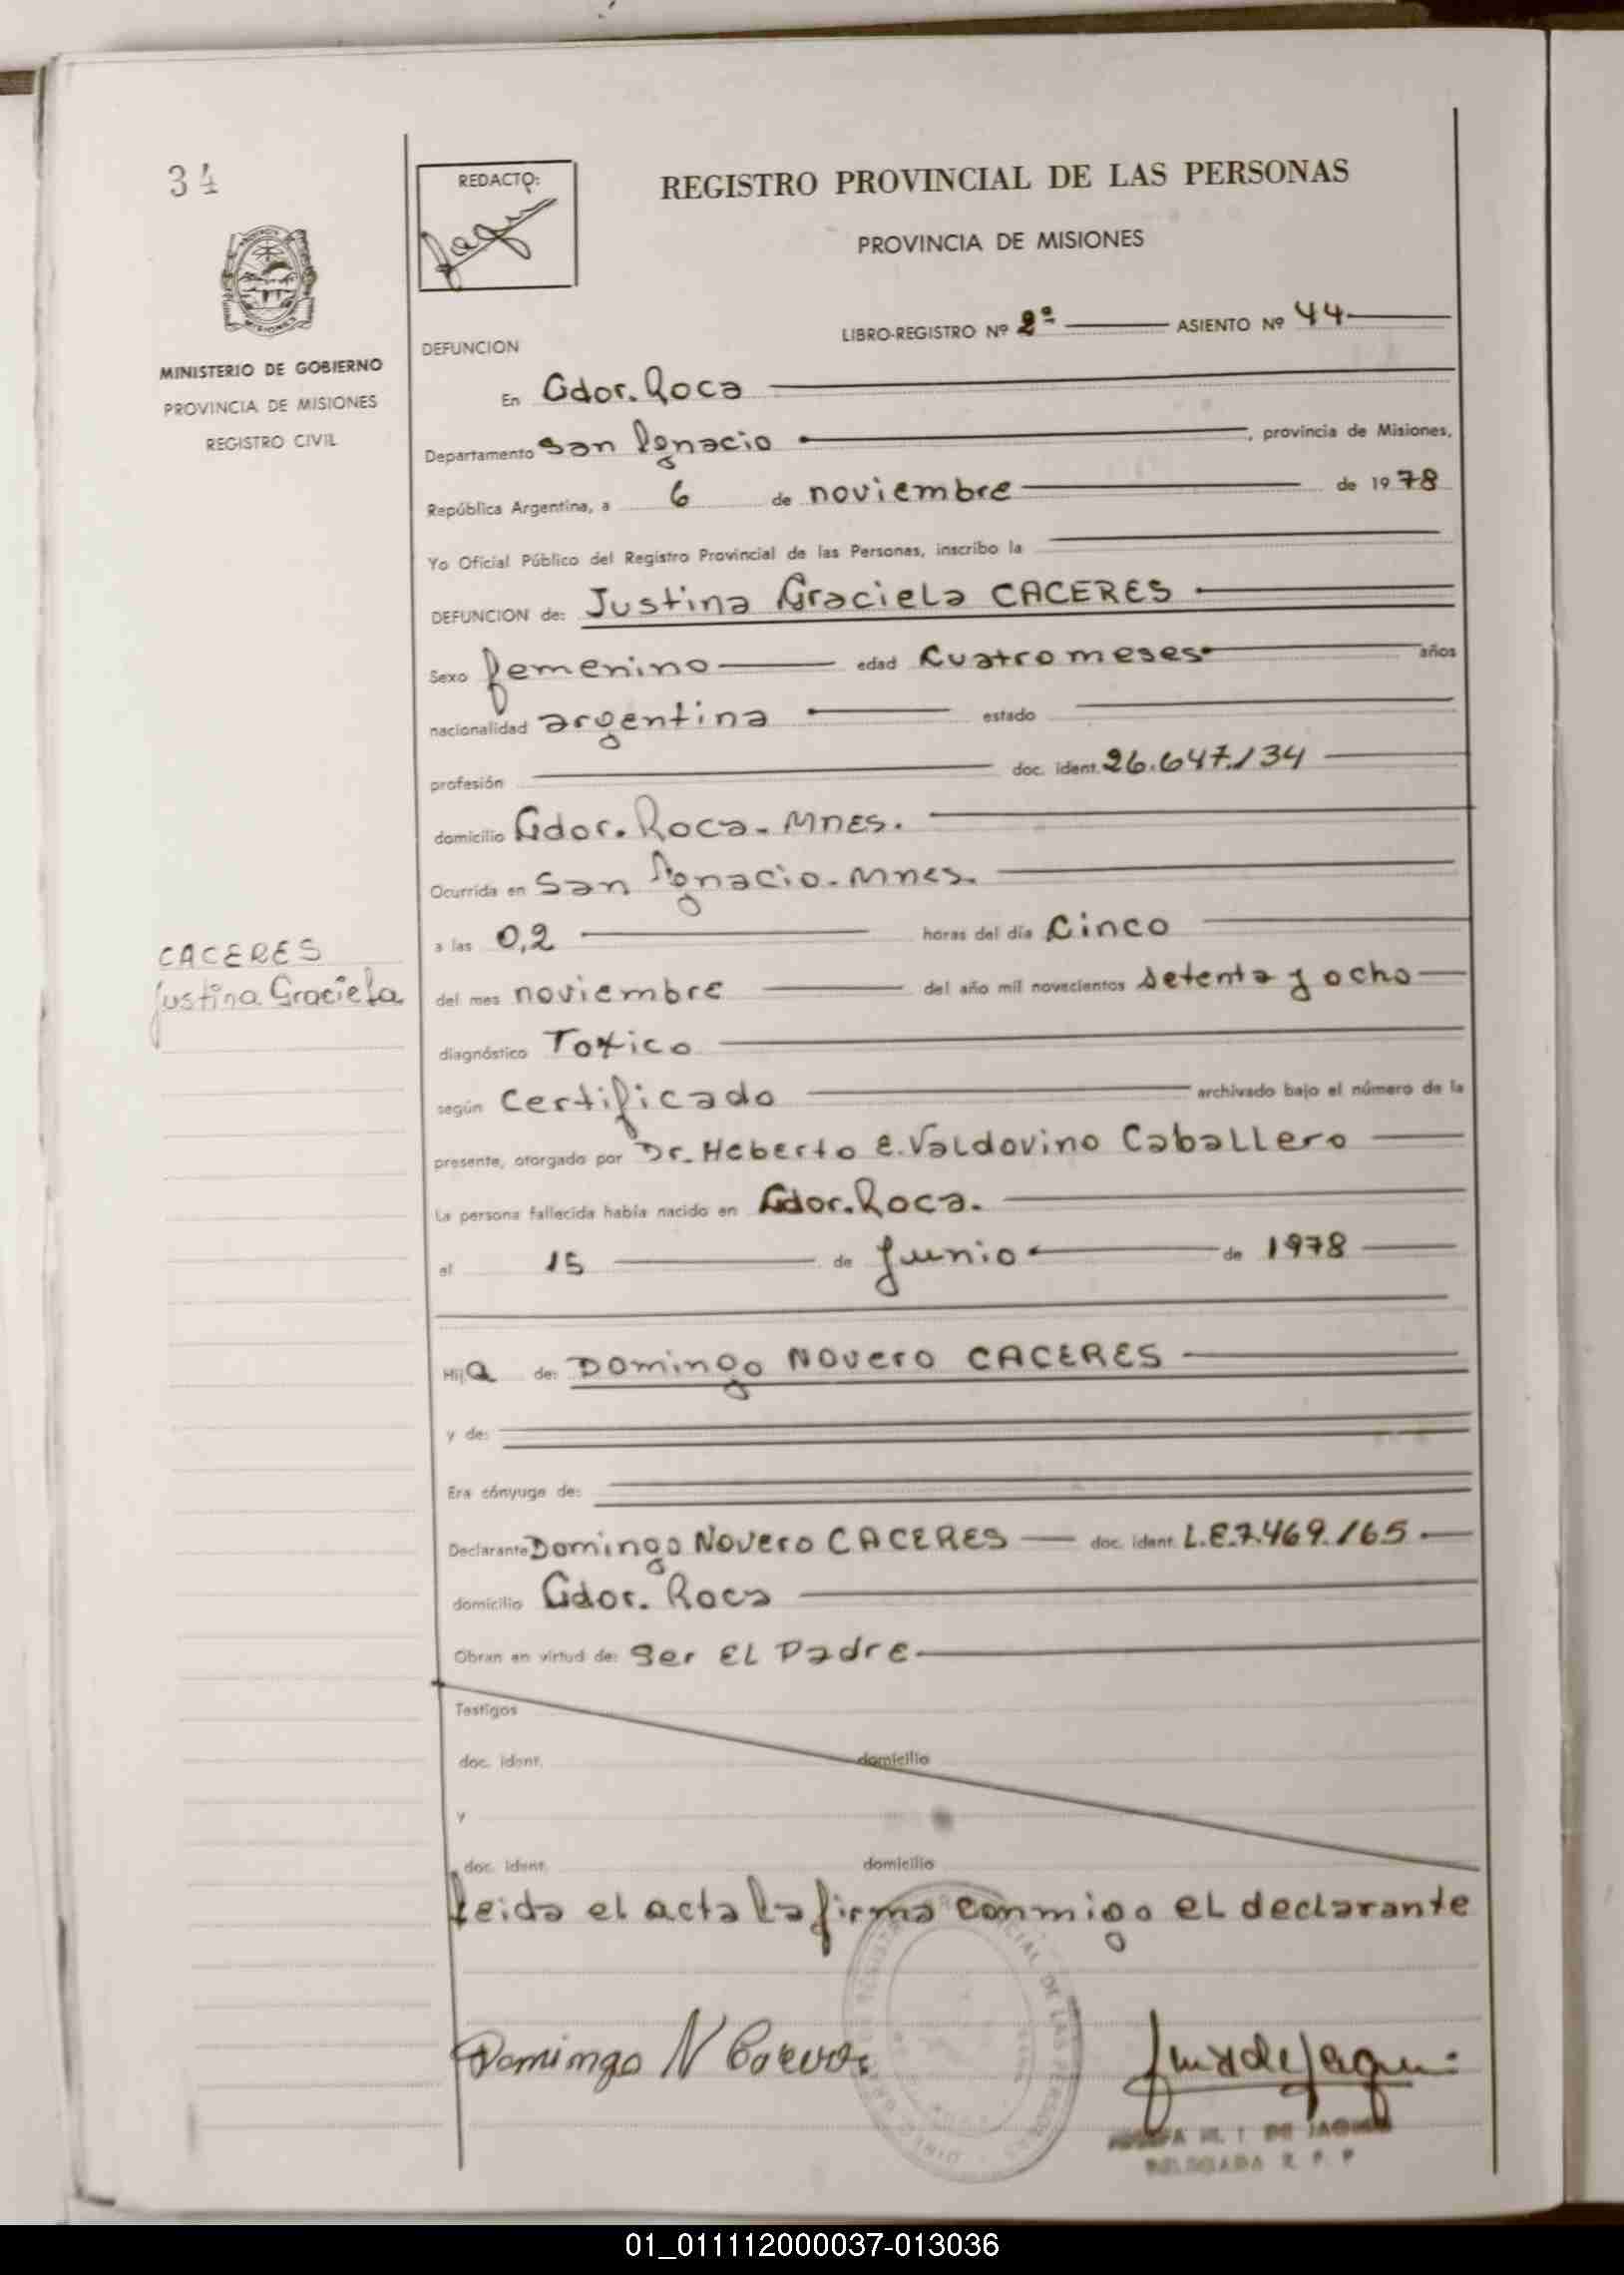 34
REDACTO:
REGISTRO PROVINCIAL DE LAS PERSONAS
PROVINCIA DE MISIONES
MINISTERIO DE GOBIERNO
PROVINCIA DE MISIONES
REGISTRO CIVIL
LIBRO-REGISTRO Nº 2º ASIENTO Nº 44
DEFUNCION
En Gdor. Roca
Departamento San Ignacio, provincia de Misiones,
República Argentina, a 6 de noviembre de 1978
Yo Oficial Público del Registro Provincial de las Personas, inscribo la
DEFUNCION de: Justina Graciela CACERES
Sexo femenino edad Cuatro meses años
nacionalidad argentina estado
profesión doc. ident. 26.647.134
domicilio Gdor. Roca. Mnes.
Ocurrida en San Ignacio. Mnes.
a las 0,2 horas del día Cinco
CACERES
Justina Graciela
del mes noviembre del año mil novecientos setenta y ocho
diagnóstico Toxico
según Certificado archivado bajo el número de la
presente, otorgado por Dr. Heberto E. Valdovino Caballero
La persona fallecida había nacido en Gdor. Roca.
el 15 de Junio de 1978
Hija de: Domingo Novero CACERES
y de:
Era cónyuge de:
Declarante Domingo Novero CACERES doc. ident. L.E. 7.469.165
domicilio Gdor. Roca
Obran en virtud de: Ser EL Padre
Testigos
doc. ident. domicilio
y
doc. ident. domicilio
Leida el acta la firma conmigo el declarante
Domingo N Caceres
DE JAQUE
DELEGADA R. P. P
01_011112000037-013036